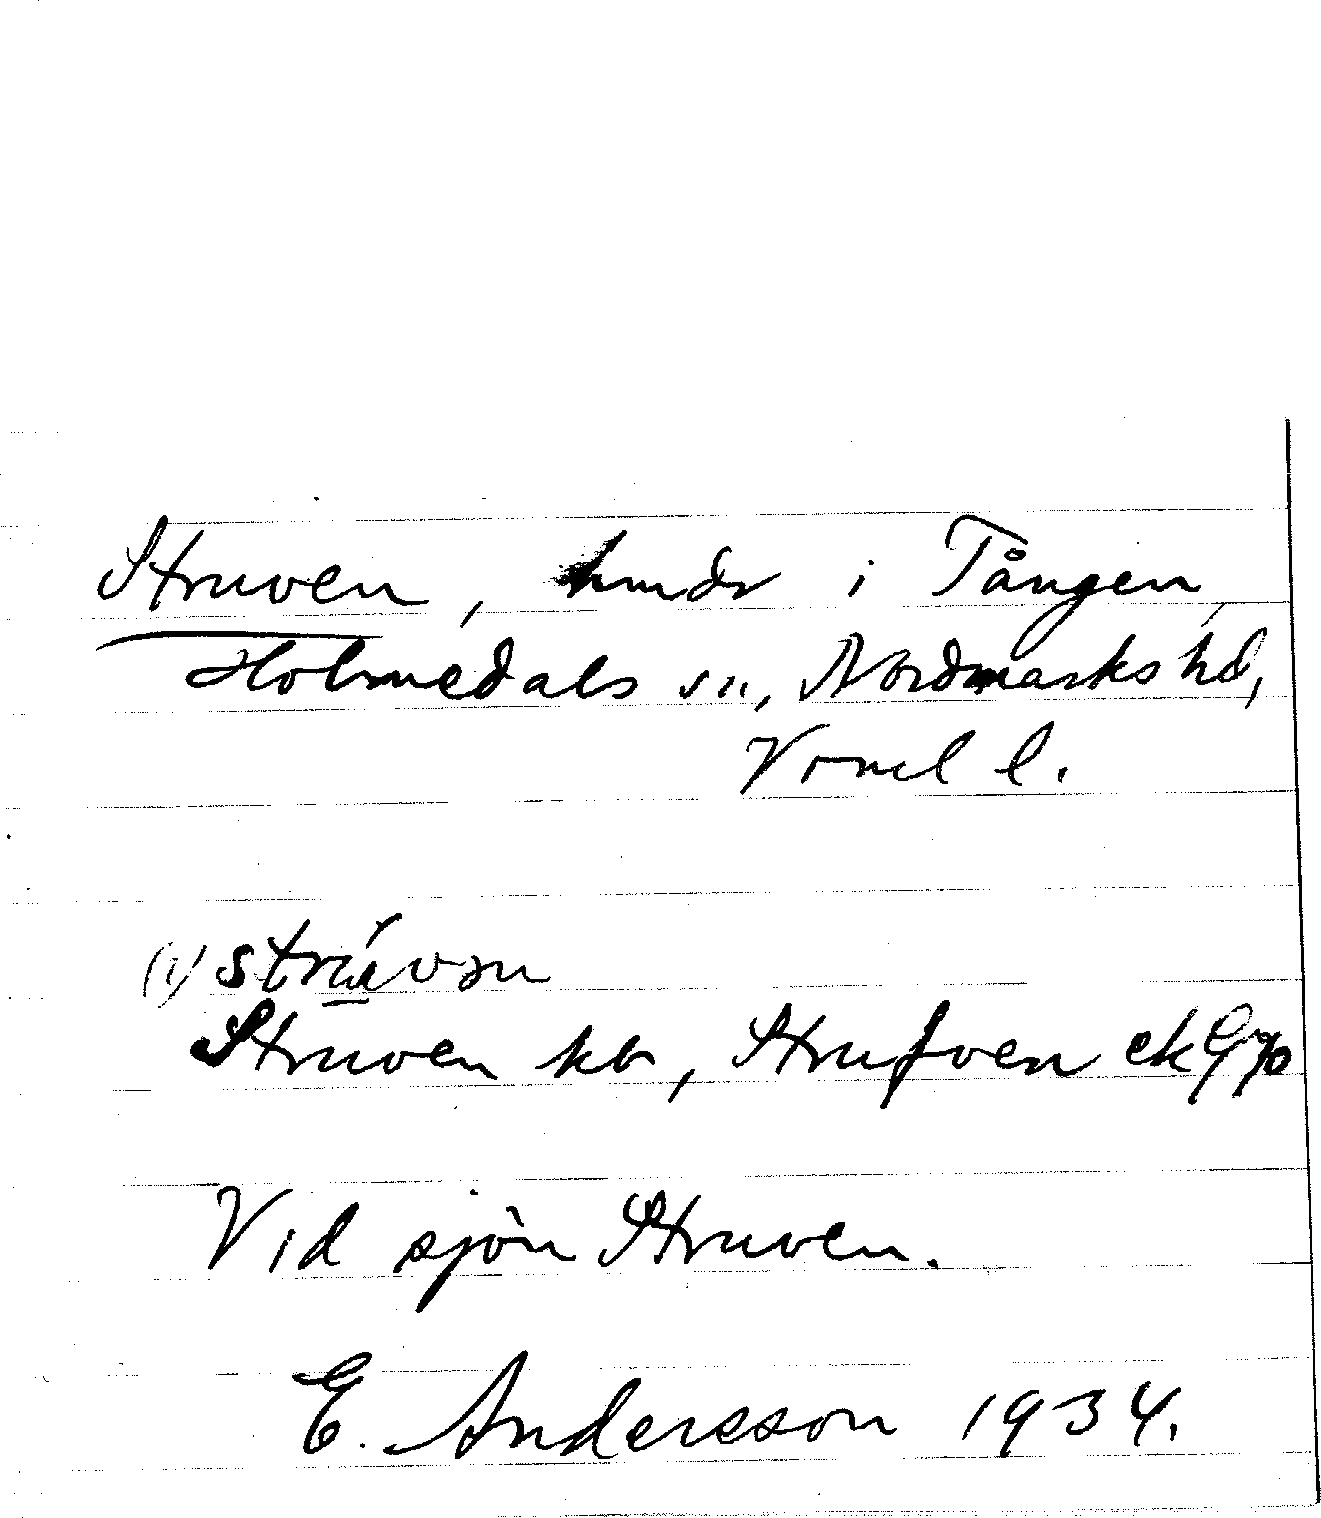 Struven, i Tången,
Holmedals sn, Nordmarks hd,
Vrml l.
(i) strúvən
Struven kb, Strufven ek
Vid sjön Struven.
E. Andersson 1934.